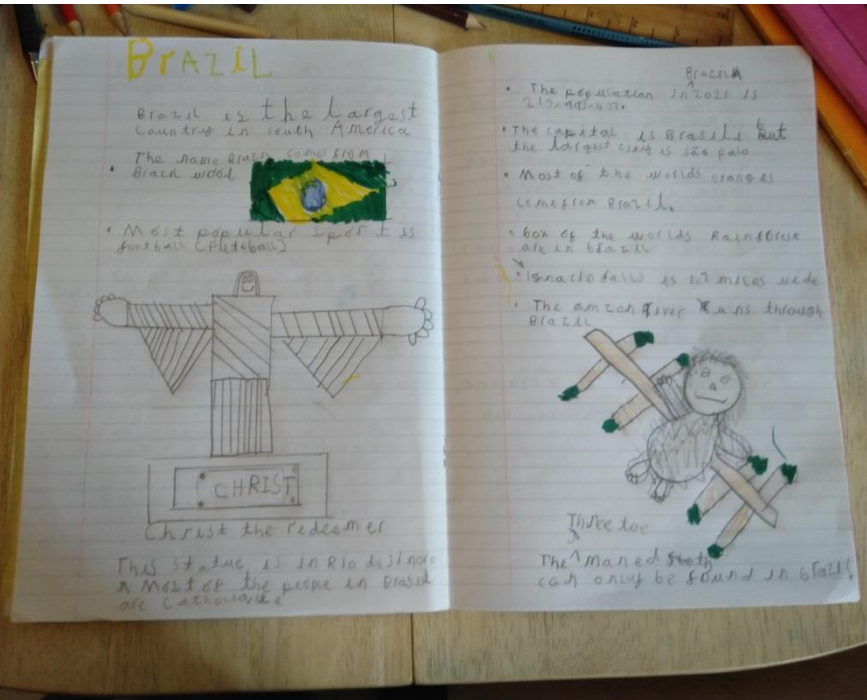 BrAZIL
Brazil is the largest
Country in south America
The name Brazil comes from
Brazil wood
Most popular sport is
football (futeball)
CHRIST
Christ the redeemer
This statue is in Rio
Most of the in Brasil
are
Brazil
The population in 2021 is
The capital is Brasili But
the largest city is são palo
Most of the worlds oranges
come from Brazil.
of the worlds Rainforest
are in brazil
falls is 1.7 miles wide
The river runs through
Brazil
Three toe
The maned sloth
can only be found in brazil!